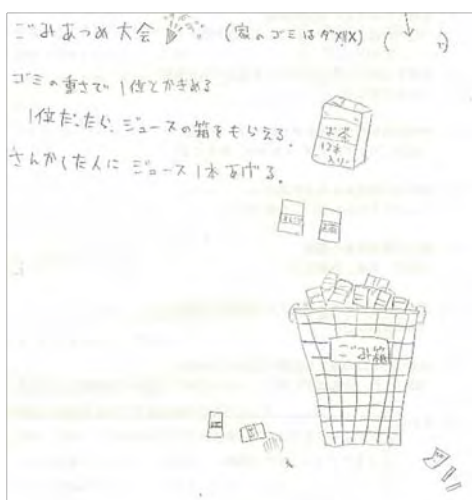 ごみあつめ大会 (家のゴミはダメ)
ゴミの重さで 1位とかきめる
1位だったら、ジュースの箱をもらえる。
さんかした人に ジュース1本あげる。
お茶
12本
入り
ごみ箱